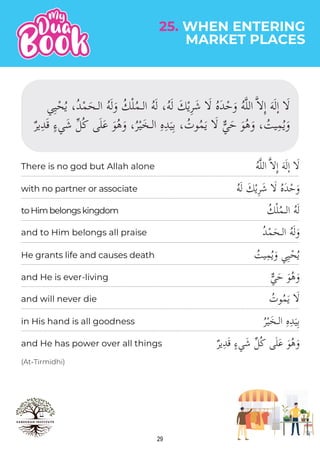 My
Dua
Book
25. WHEN ENTERING
MARKET PLACES
لَا إِلَهَ إِلَّا اللَّهُ وَحْدَهُ لَا شَرِيْكَ لَهُ، لَهُ الْـمُلْكُ وَلَهُ الْـحَمْدُ، يُحْيِيْ
وَيُمِيْتُ، وَهُوَ حَيٌّ لَا يَمُوتُ، بِيَدِهِ الْـخَيْرُ، وَهُوَ عَلَى كُلِّ شَيءٍ قَدِيرٌ
There is no god but Allah alone لَا إِلَهَ إِلَّا اللَّهُ
with no partner or associate وَحْدَهُ لَا شَرِيْكَ لَهُ
to Him belongs kingdom لَهُ الْـمُلْكُ
and to Him belongs all praise وَلَهُ الْـحَمْدُ
He grants life and causes death يُحْيِيْ وَيُمِيْتُ
and He is ever-living وَهُوَ حَيٌّ
and will never die لَا يَمُوتُ
in His hand is all goodness بِيَدِهِ الْـخَيْرُ
and He has power over all things وَهُوَ عَلَى كُلِّ شَيءٍ قَدِيرٌ
(At-Tirmidhi)
29